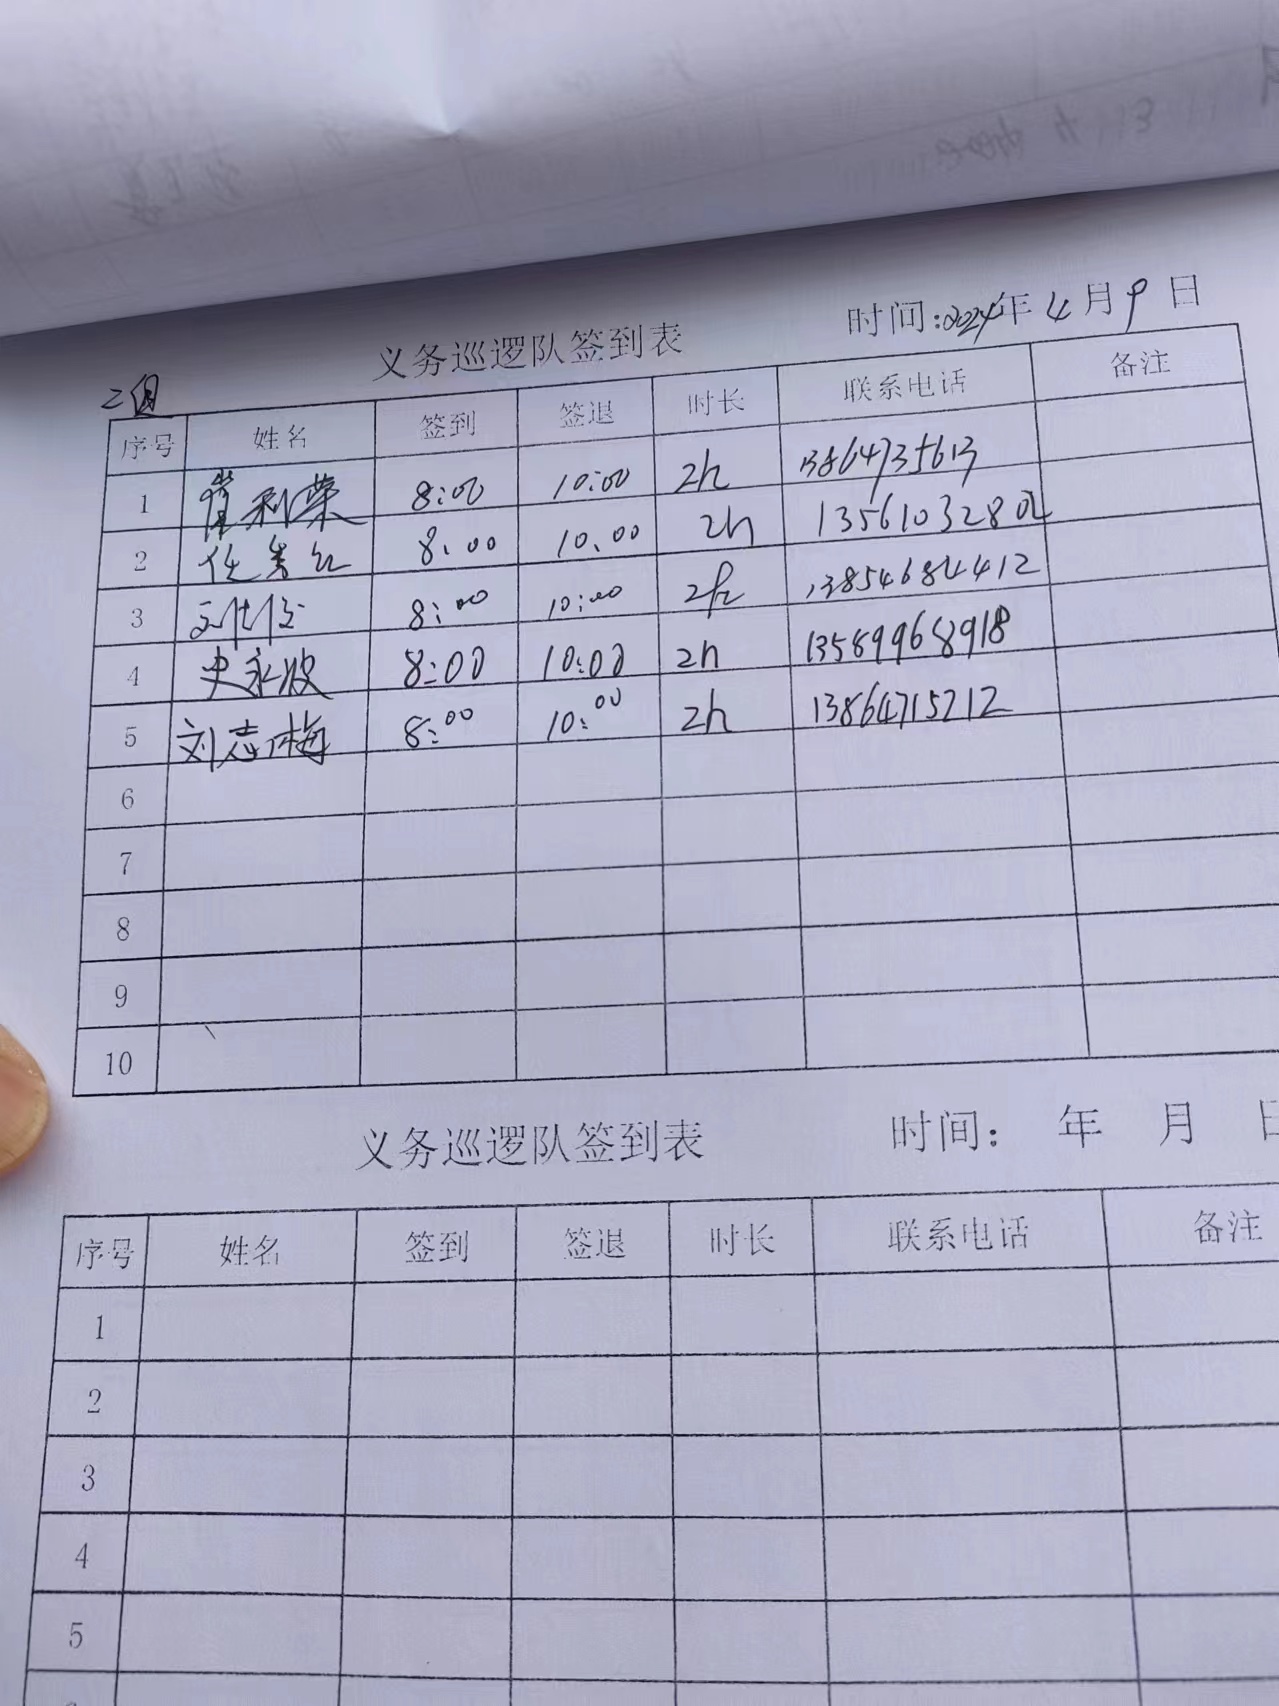 义务巡逻队签到表 时间:2024年4月9日
二组
序号 姓名 签到 签退 时长 联系电话 备注
1 崔利荣 8:00 10:00 2h 13864735613
2 8:00 10:00 2h 13561032802
3 8:00 10:00 2h 13854684412
4 史永波 8:00 10:00 2h 13589968918
5 刘志梅 8:00 10:00 2h 13864715212
6
7
8
9
10
义务巡逻队签到表 时间: 年 月 日
序号 姓名 签到 签退 时长 联系电话 备注
1
2
3
4
5